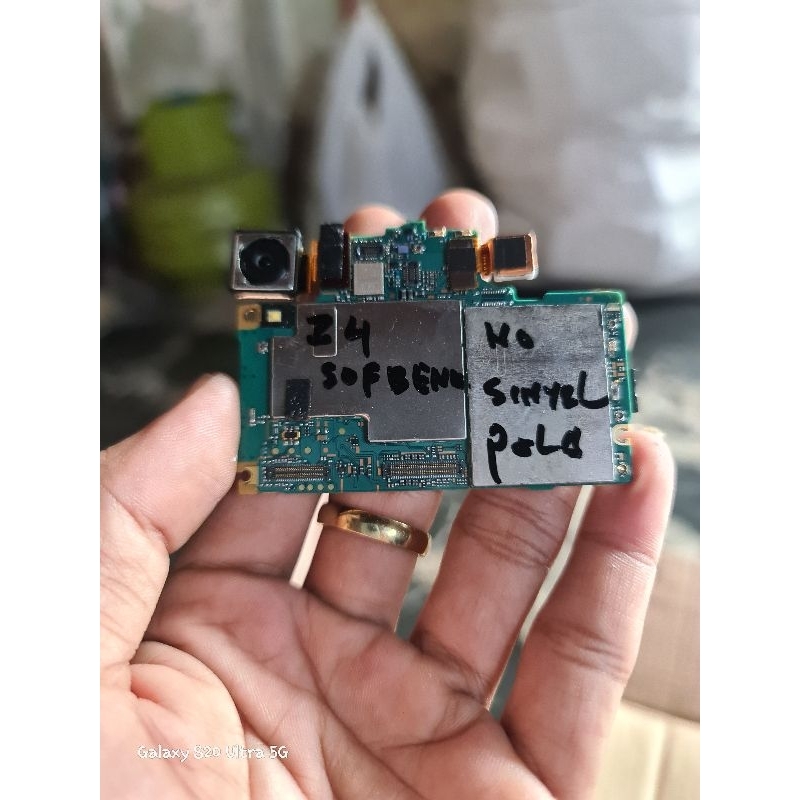 Z4
SOFBENK
NO
SINYEL
POLA
Galaxy S20 Ultra 5G